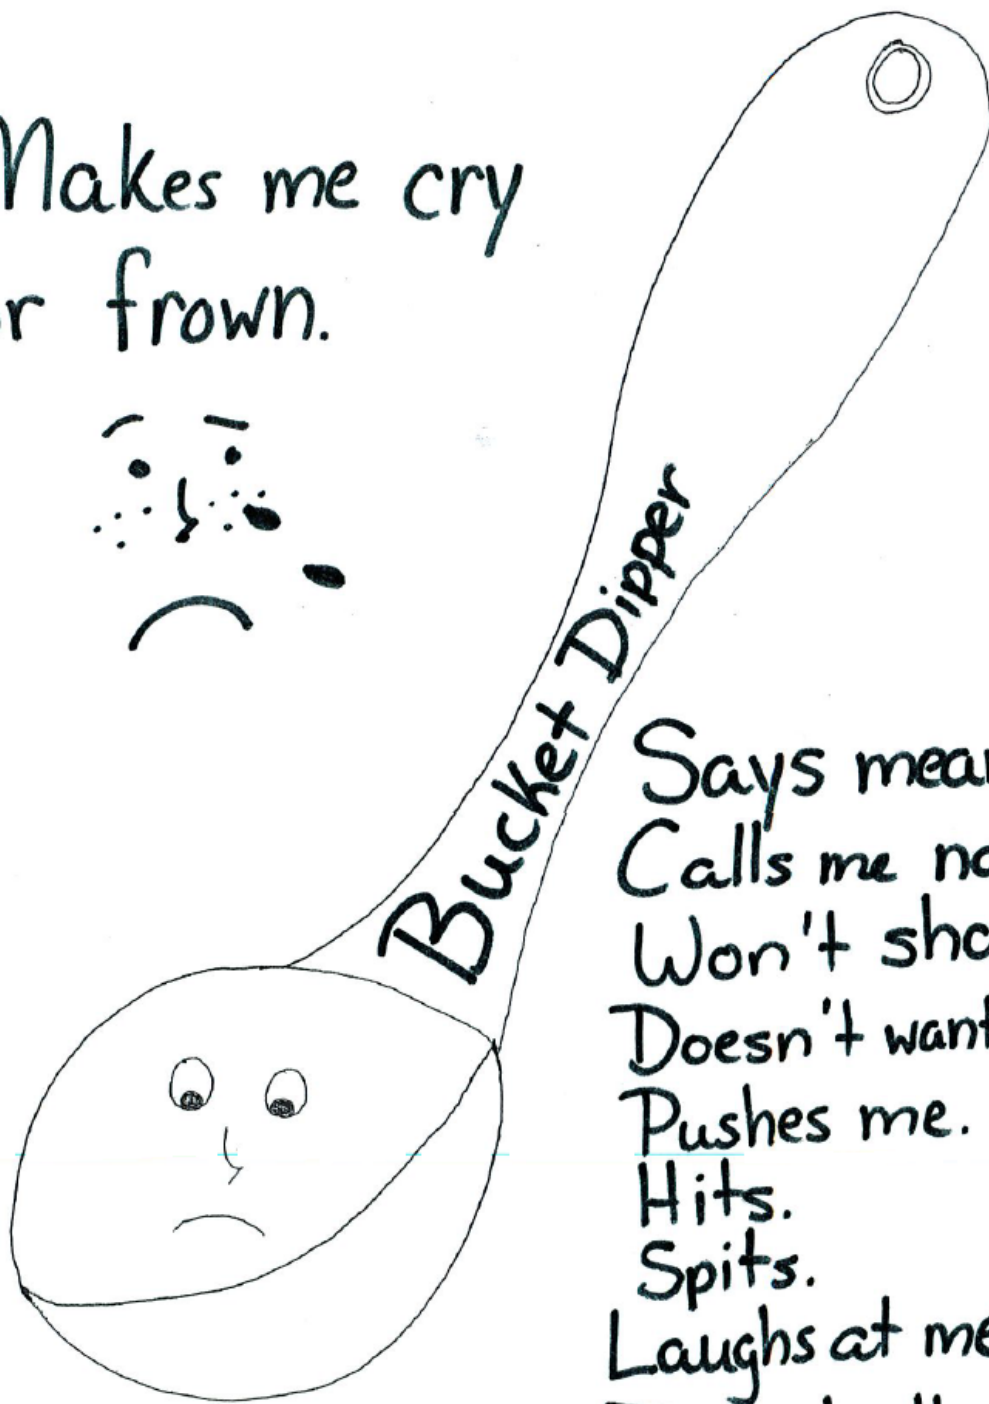 Makes me cry
or frown.
Bucket Dipper
Says mean
Calls me
Won't
Doesn't want
Pushes me.
Hits.
Spits.
Laughs at me